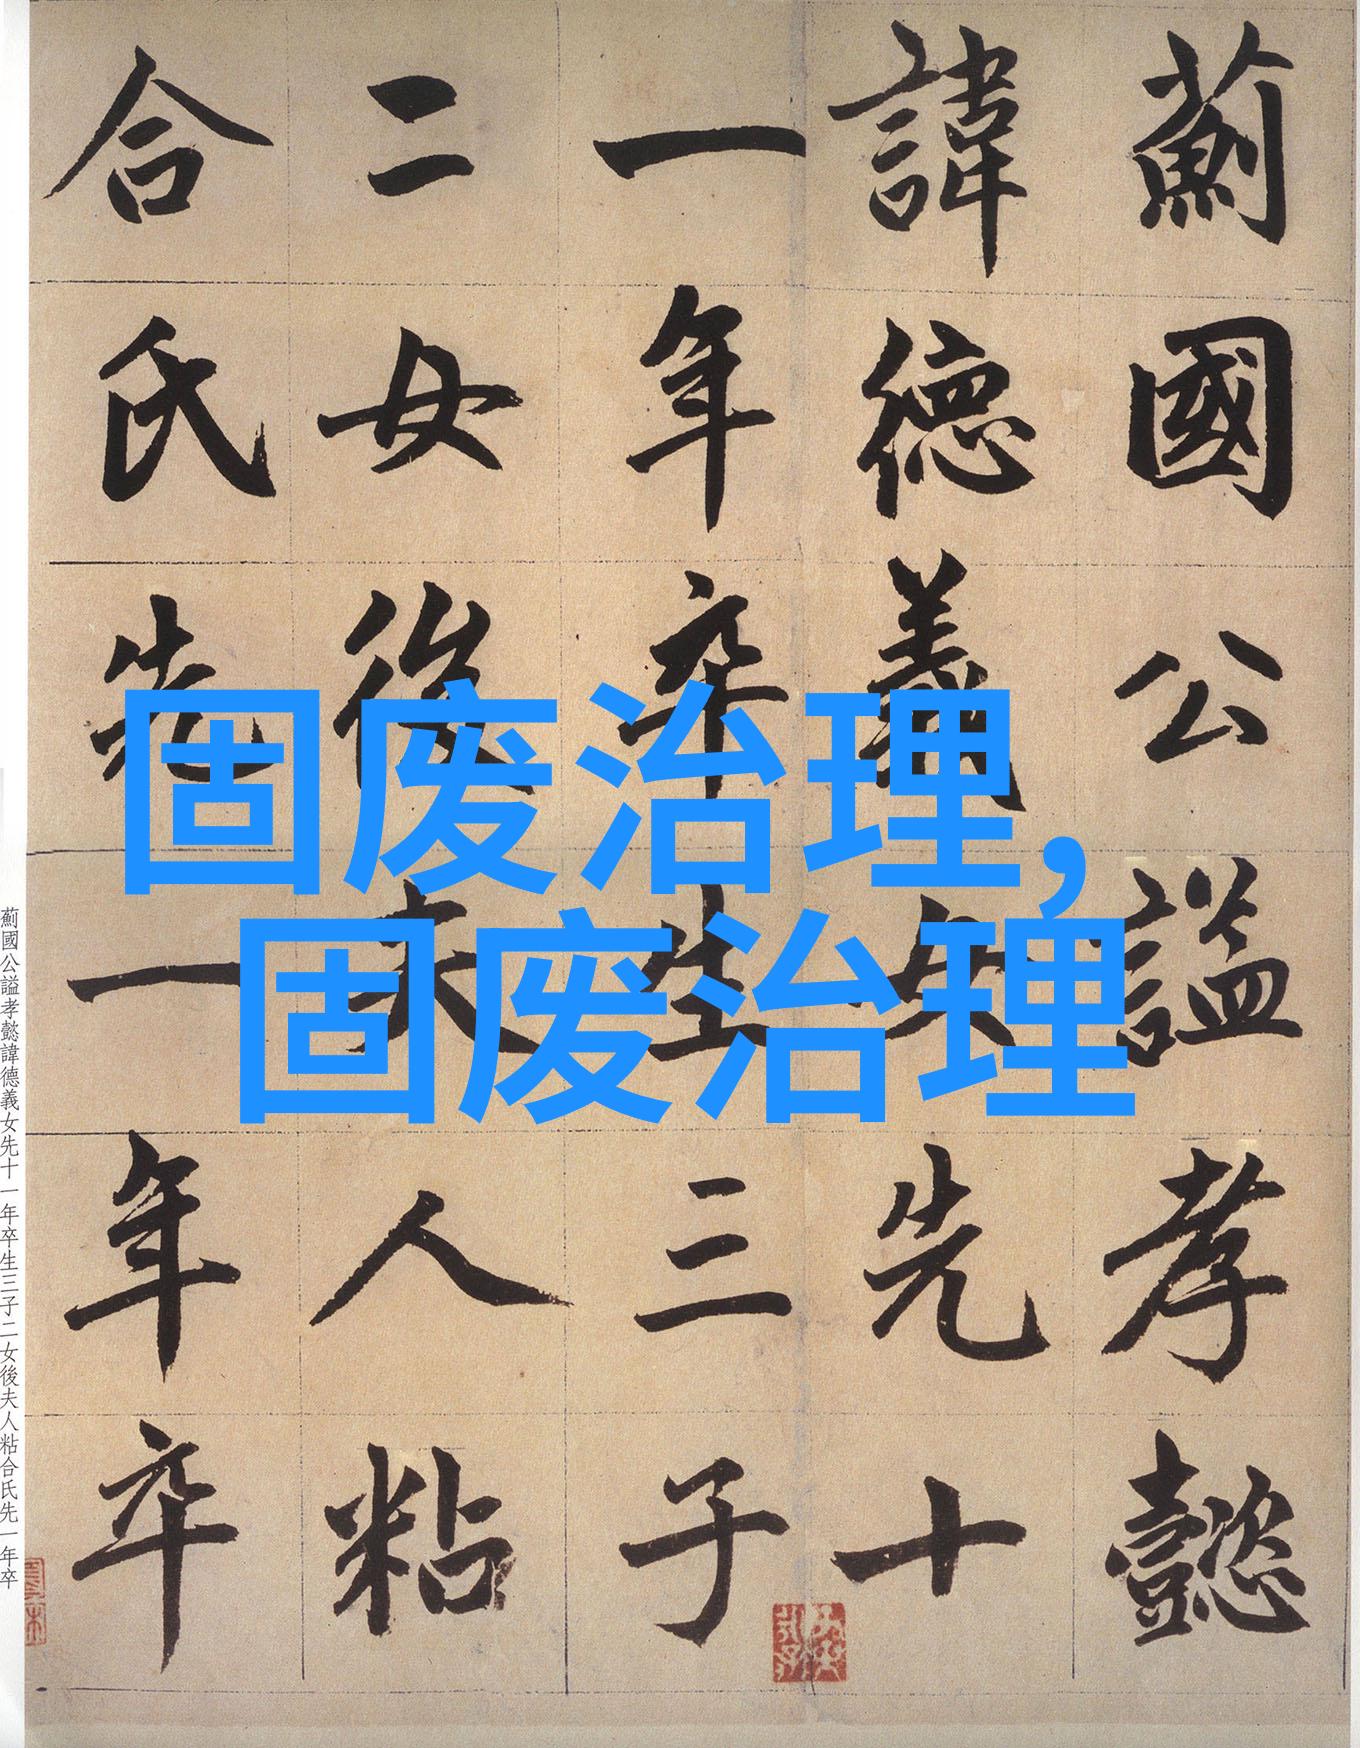 薊國公謚孝懿
諱德義女先十
一年卒生三子
二女後夫人粘
合氏先一年卒
固废治理,
固废治理
薊國公謚孝懿諱德義女先十一年卒生三子二女後夫人粘合氏先一年卒